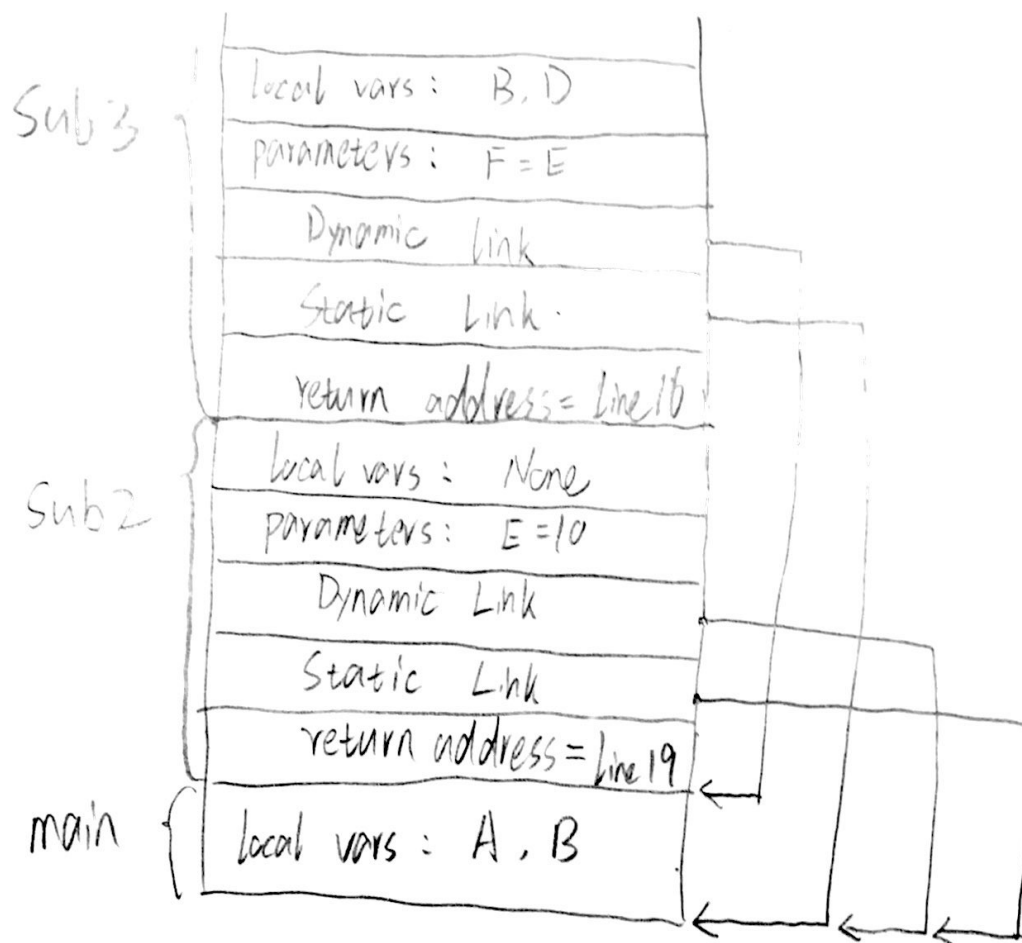 Sub3
local vars : B, D
parameters : F = E
Dynamic link
Static Link.
return address = Line 16
Sub2
local vars : None
parameters : E = 10
Dynamic Link
Static Link
return address = Line 19
main
local vars : A, B